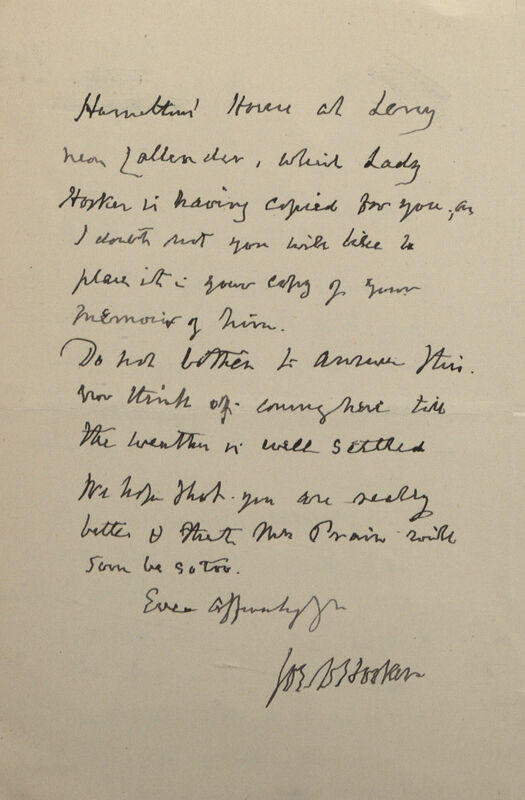 Hamilton's House at Leny
near Callender, which Lady
Hooker is having copied for you, as
I doubt not you will like to
place it in your copy of your
Memoir of him.
Do not bother to answer this.
nor think of coming here till
the weather is well settled
We hope that you are really
better & that Mrs Prain will
soon be so too.
Ever affectionately yrs
Jos. D. Hooker